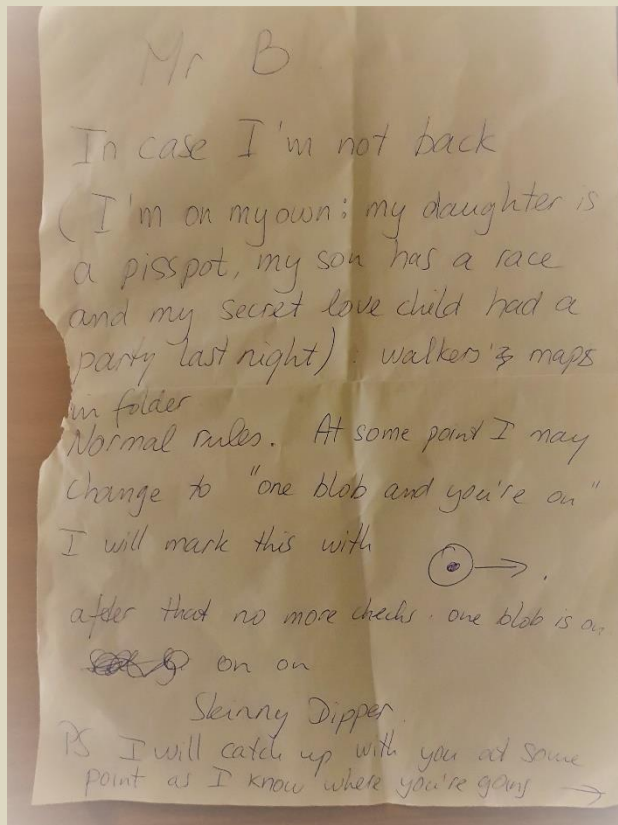 Mr B
In case I'm not back
(I'm on my own: my daughter is
a pisspot, my son has a race
and my secret love child had a
party last night). walkers' maps
in folder
Normal rules. At some point I may
change to "one blob and you're on"
I will mark this with
after that no more checks. one blob is on
on on
Skinny Dipper.
PS I will catch up with you at some
point as I know where you're going